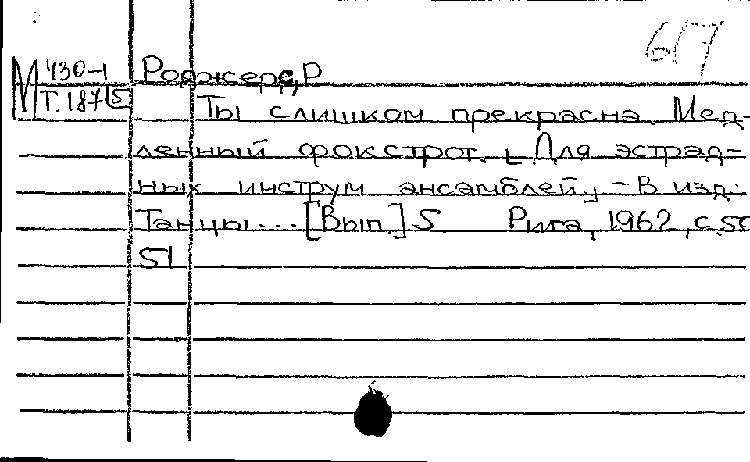 617
М 430-1
Т.187/5
Роджерс, Р
Ты слишком прекрасна. Мед-
ленный фокстрот. [Для эстрад-
ных инструм ансамблей] - В изд:
Танцы... [Вып] 5 Рига, 1962, с. 50
51